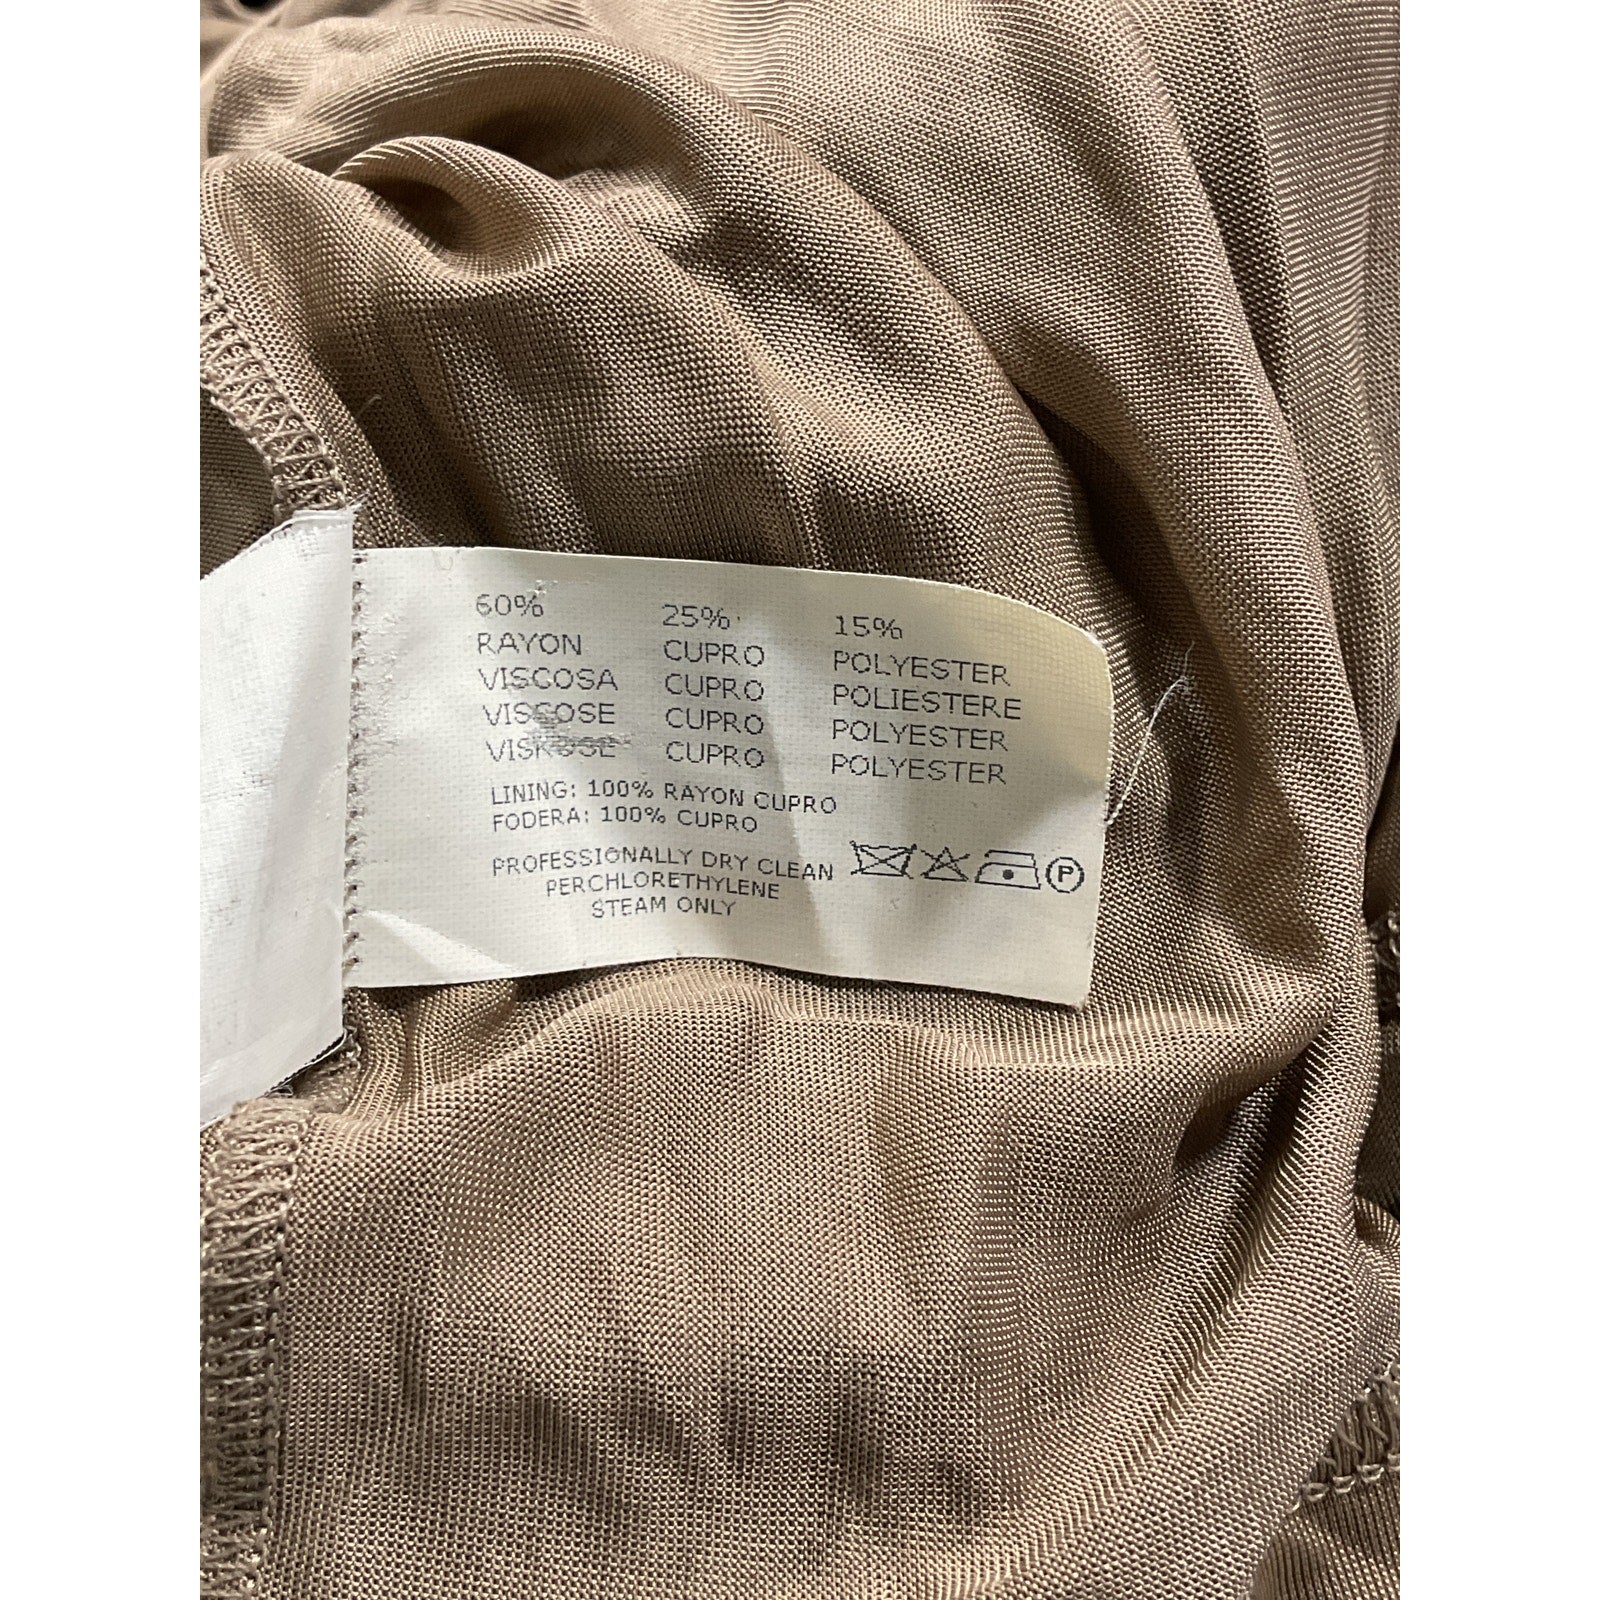 60% 25% 15%
RAYON CUPRO POLYESTER
VISCOSA CUPRO POLIESTERE
VISCOSE CUPRO POLYESTER
VISKOSE CUPRO POLYESTER
LINING: 100% RAYON CUPRO
FODERA: 100% CUPRO
PROFESSIONALLY DRY CLEAN
PERCHLORETHYLENE
STEAM ONLY
P